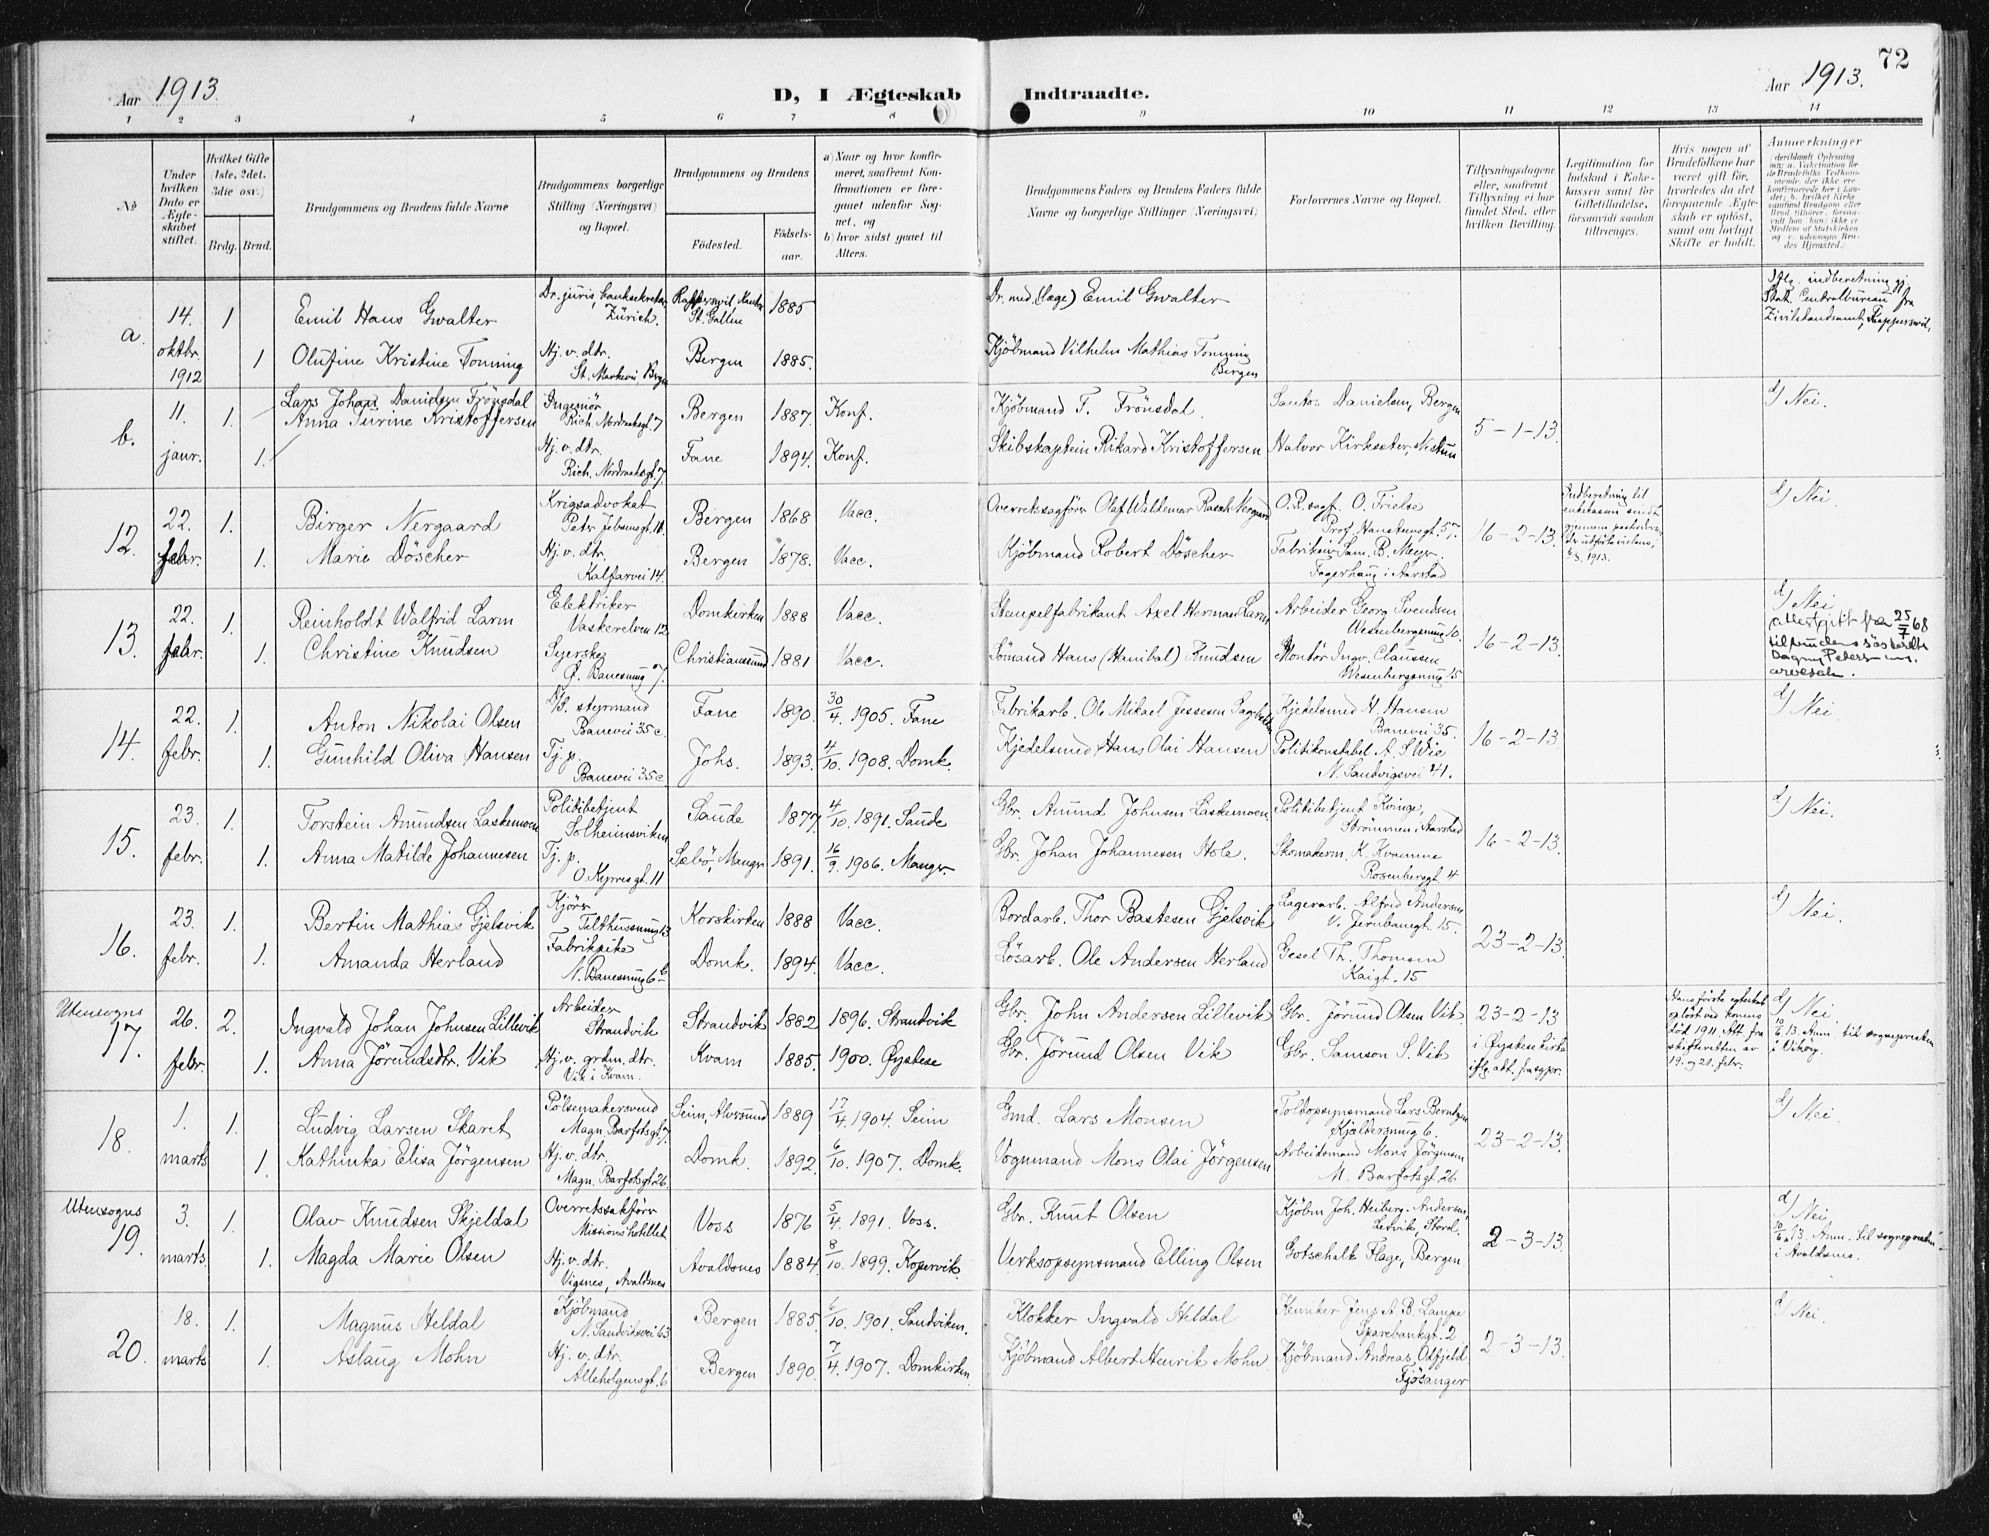 72
Aar 1913.
D, I Ægteskab Indtraadte.
Aar 1913.
1 2 3 4 5 6 7 8 9 10 11 12 13 14
No
Under hvilken Dato er Ægteskabet stiftet.
Hvilket Gifte (1ste, 2det, 3die osv.)
Brdg. Brud.
Brudgommens og Brudens fulde Navne
Brudgommens borgerlige Stilling (Næringsvei) og Bopæl.
Brudgommens og Brudens
Fødested.
Fødselsaar.
a) Naar og hvor konfirmeret, saafremt Konfirmationen er foregaaet udenfor Sognet, og
b) hvor sidst gaaet til Alters.
Brudgommens Faders og Brudens Faders fulde Navne og borgerlige Stillinger (Næringsvei)
Forlovernes Navne og Bopæl.
Tillysningsdagene eller, saafremt Tillysning ei har fundet Sted, efter hvilken Bevilling.
Legitimation for Indskud i Enkekassen samt for Giftetilladelse, forsaavidt saadan tiltrænges.
Hvis nogen af Brudefolkene har været gift før, hvorledes da det foregaaende Ægteskab er opløst, samt om lovligt Skifte er holdt.
Anmerkninger
a. 14. oktbr. 1912
1 Emil Hans Gwalter Dr. juris, banksekretær, Zürich. Rapperswil Kanton St. Gallen 1885 Dr. med. (læge) Emil Gwalter
Iflg. indberetning gj. Stat. Centralbureau fra Zivilstandsamt, Rapperswil.
1 Olufine Kristine Tonning Hj. v. dtr. St. Markevei Bergen Bergen 1885. Kjöbmand Vilhelm Mathias Tonning Bergen
b. 11. janr.
1. Lars Johan Danielsen Frönsdal Ingeniör Rich. Nordraaksgt. 7 Bergen 1887. Konf. Kjöbmand T. Frönsdal. Santos Danielsen, Bergen 5-1-13. d) Nei.
1. Anna Turine Kristoffersen Hj. v. dtr. Rich. Nordraaksgt. 7 Fane 1894. Konf. Skibskaptein Rikard Kristoffersen Halvor Kirkseter, Nestun
12. 22. febr.
1. Birger Nergaard Krigsadvokat Peter Jebsensgt. 18. Bergen 1868 Vacc. Overretssagförer Olaf Waldemar Rasch Nergaard O.R.sagf. O. Trielse Prof. Hansteensgt. 57. 16-2-13. d) Nei
1. Marie Döscher Hj. v. dtr. Kalfarvei 14. Bergen 1878. Vacc. Kjöbmand Robert Döscher Fabrikeier Sam. B. Meyer. Fagerhaug i Aarstad
13. 22. febr.
1. Reinholdt Walfrid Larm Elektriker Vaskerelven 12 Domkirken 1888 Vacc. Stempelfabrikant Axel Herman Larm Arbeider Georg Svendsen Wesenbergsmug 10. 16-2-13. d) Nei
attest gitt fra 25/7 68 til
Dagny Petersen
1. Christine Knudsen Syerske Ö. Banesmug 7. Christianssund 1881 Vacc. Sömand Hans (Hanibal) Knudsen Montör Ingv. Claussen Wesenbergsmug 15
14. 22. febr.
1. Anton Nikolai Olsen D/S. styrmand Banevei 35 c. Fane 1890. 30/4. 1905. Fane Fabrikarb. Ole Mikael Jessesen Kjedelsmed H. Hansen Banevei 35. 16-2-13. d) Nei
1. Gunhild Oliva Hansen Tj. p. Banevei 35 c Johs. 1893. 4/10. 1908. Domk. Kjedelsmed Hans Olai Hansen Politikonstabel A. S. Wie N. Sandvigsvei 41.
15. 23. febr.
1. Torstein Amundsen Laskemoen Politibetjent Solheimsviken Saude 1877. 4/10. 1891. Saude Gbr. Amund Johnsen Laskemoen Politibetjent Kvinge, Strömmen i Aarstad 16-2-13. d) Nei.
1. Anna Matilde Johannesen Tj. p. O. Kyrresgt. 11 Sæbö, Manger 1891. 16/9. 1906. Manger. Gbr. Johan Johannesen Hole. Skomakerm. K. Kvamme Rosenberggt. 4
16. 23. febr.
1. Bertin Mathias Gjelsvik Kjörer Telthussmug 13 Korskirken 1888 Vacc. Bordarb. Thor Bastesen Gjelsvik Lagerarb. Alfred Andersen V. Jernbanegt. 15- 23-2-13. d) Nei.
1. Amanda Herland Fabrikpike N. Banesmug 6 b Domk. 1894. Vacc. Lösarb. Ole Andersen Herland Gesel Th. Thomsen Kaigt. 15
Utensogns 17. 26. febr.
2. Ingvald Johan Johnsen Lillevik Arbeider Strandvik Strandvik 1882 1896. Strandvik Gbr. John Andersen Lillevik Gbr. Jörund Olsen Vik. 23-2-13 i Öystese kirke iflg. att. fra sgpr.
Hans förste egteskab oplöst ved konens död 1911. Att. fra skifteretten av 19. og 21. febr.
d) Nei. 10/6 13. Anm. til sognepresten i Viköy.
1. Anna Jörundsdtr. Vik Hj. v. grdm. dtr. Vik i Kvam. Kvam 1885. 1900. Öystese Gbr. Jörund Olsen Vik Gbr. Samson S. Vik
18. 1. marts
1. Ludvig Larsen Skaret Pölsemakersvend Magn. Barfotsgt. 7. Seim, Alversund 1889 17/4 1904. Seim Gmd. Lars Monsen Toldopsynsmand Lars Berntzen Kjeldersmug 6. 23-2-13. d) Nei.
1. Kathinka Elisa Jörgensen Hj. v. dtr. Magn. Barfotsgt. 26. Domk. 1892. 6/10. 1907. Domk. Vognmand Mons Olai Jörgensen Arbeidsmand Mons Jörgensen M. Barfotsgt. 26
Utensogns 19. 3. marts
1. Olav Knudsen Skjeldal Overretssakförer Missionshotellet Voss 1876 5/4. 1891. Voss. Gbr. Knut Olsen Kjöbm. Joh. Heiberg-Andersen, Lervik, Stord. 2-3-13. d) Nei 10/6 13. Anm. til sognepresten i Avaldsnes.
1. Magda Marie Olsen Hj. v. dtr. Vigsnes, Avaldsnes Avaldsnes 1884. 8/10. 1899. Kopervik. Verksopsynsmand Elling Olsen Gotschalk Flage, Bergen
20. 18. marts
1. Magnus Heldal Kjöbmand N. Sandviksvei 63 Bergen 1885. 6/10. 1901. Sandviken. Klokker Ingvald Heldal Kemiker Jens A. B. Lampe Sparebankgt. 2 2-3-13. d) Nei.
1. Aslaug Mohn Hj. v. dtr. Allehelgensgt. 6 Bergen 1890. 7/4. 1907. Domkirken. Kjöbmand Albert Henrik Mohn Kjöbmand Andreas Odfjeld Fjösanger